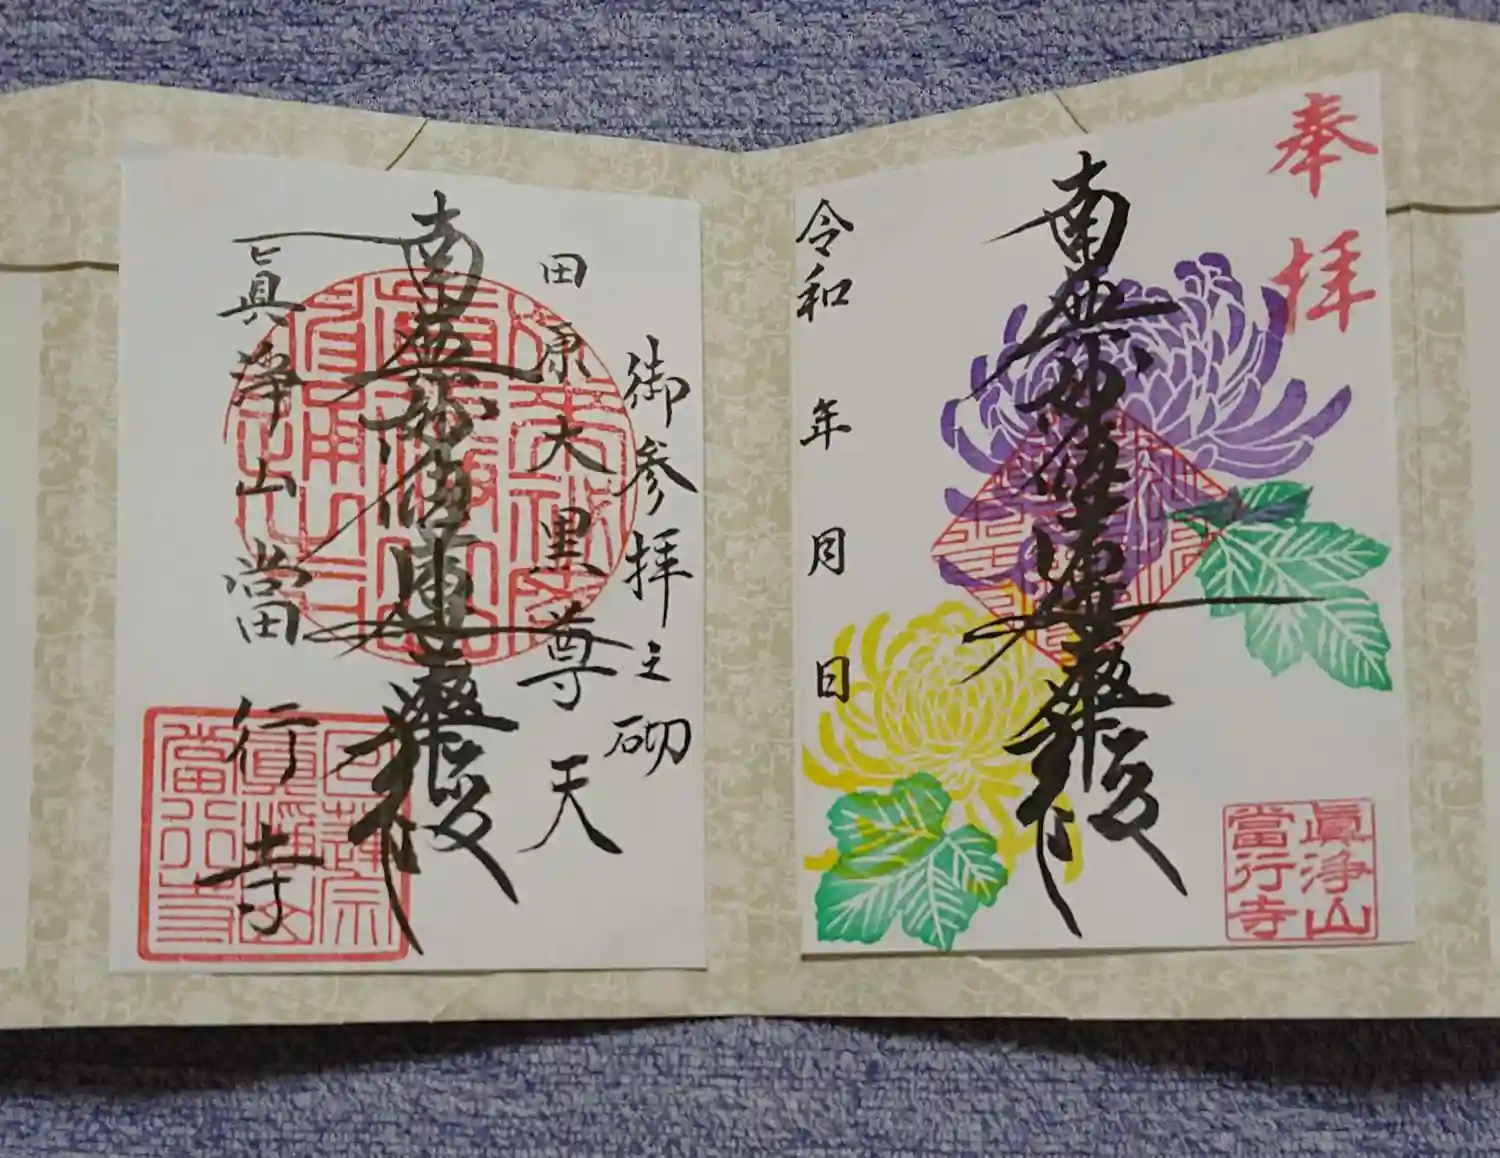 奉拝
南無妙法蓮華経
令和 年 月 日
眞浄山
當行寺
御参拝之砌
田原大黒尊天
南無妙法蓮華経
眞浄山 當行寺
日蓮宗
眞浄山
當行寺